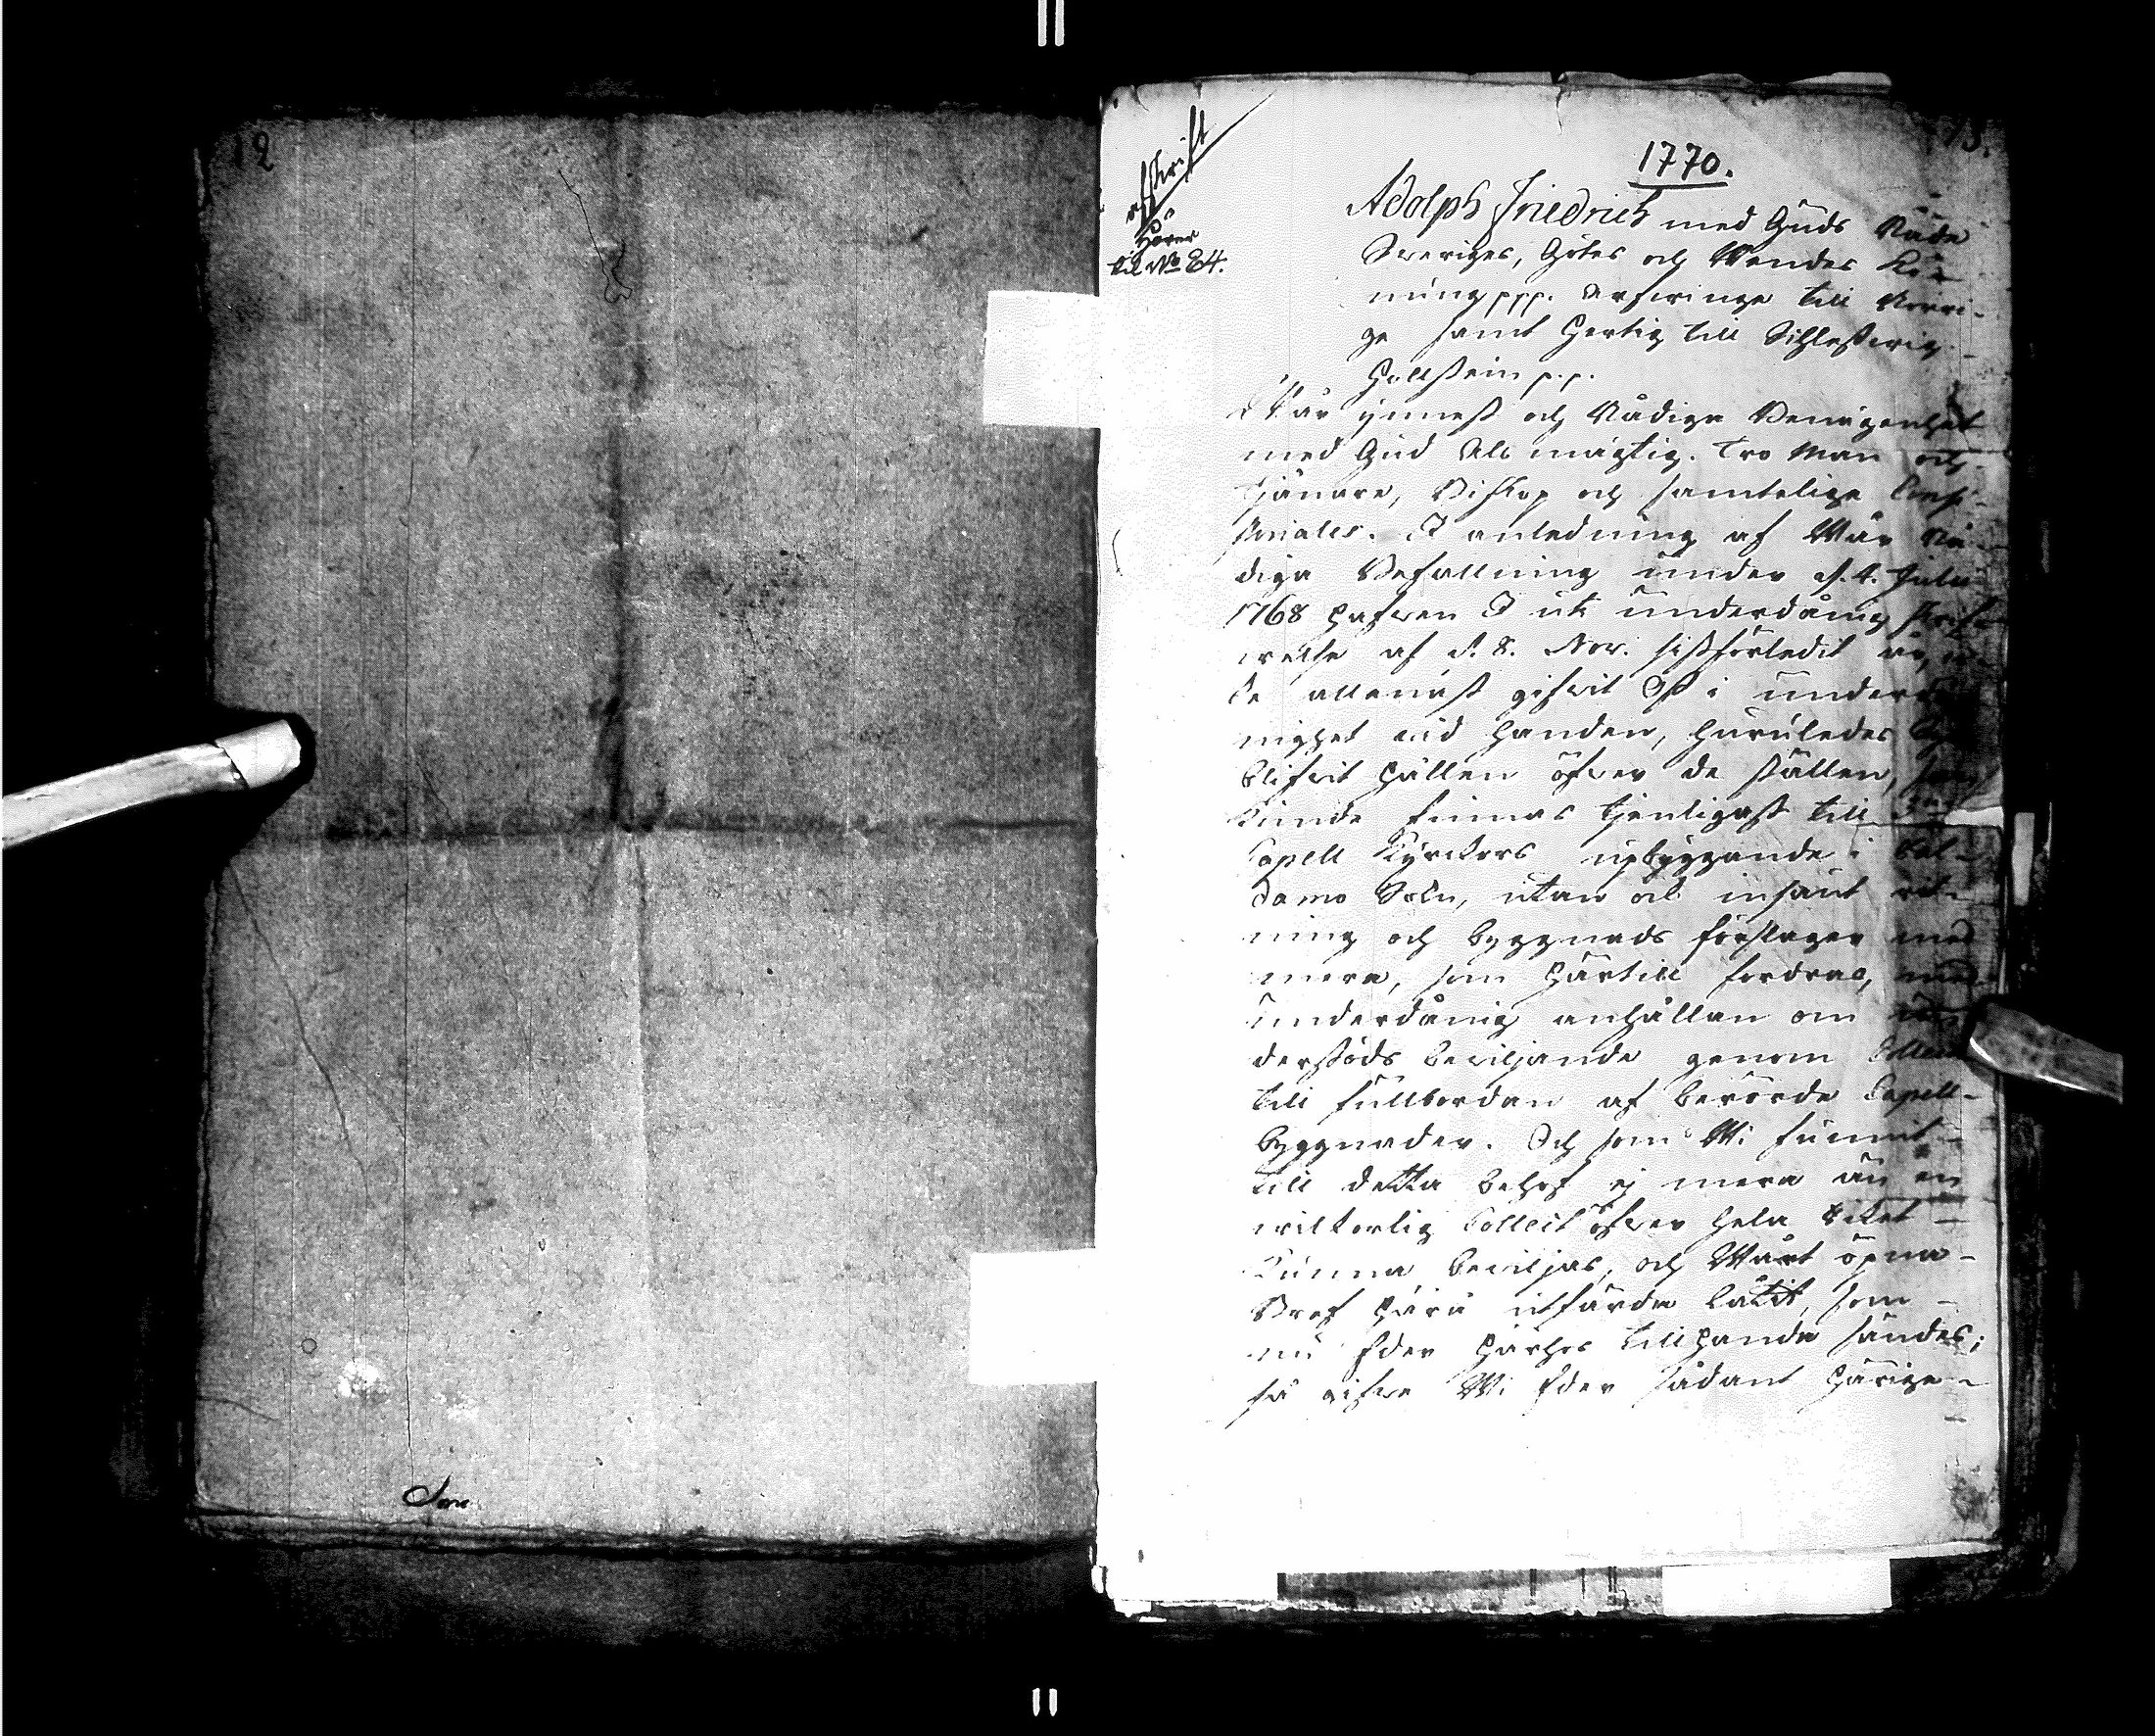 12
13.
afskrift
Hörer
til No 84.
1770.
Adolph Friedrich med Guds Nåde
Sveriges, Götes och Wendes Ko-
nung ppp. Arfvinge till Norri-
ge samt Hertig till Schleßwig-
Hollstein p.p.
Wår ynnest och Nådiga Benägenhet
med Gud Als mägtig. Tro Man och
tjänare, Biskop och samtelige Consi-
storiales. I anledning af Wår Nå-
diga Befallning under d. 4. Julii
1768 hafven I uti underdånig skrif-
velse af d. 8. Nov. sistförledit år,
allenast gifvit Oß i underdå-
nighet vid handen, huruledes Syn
blifvit hållen öfver de ställen, som
kunde finnas tjenligast till
Capell Kyrckors upbyggande i Cal-
damo Sokn, utan ock insänt rit-
ning och byggnads förslager med
mera, som härtill fordras, med
underdånig anhållan om un-
derstöds beviljande genom Collect
till fullbordan af berörde Capell-
byggnader. Och som Wi funnit
till detta behof ej mera än en
vilkorlig Collect öfver hela Riket
kunna beviljas, och Wårt öpna
Bref härå utfärda låtit, som
nu Eder härhos tillhanda sändes;
så gifve Wi Eder sådant härige-